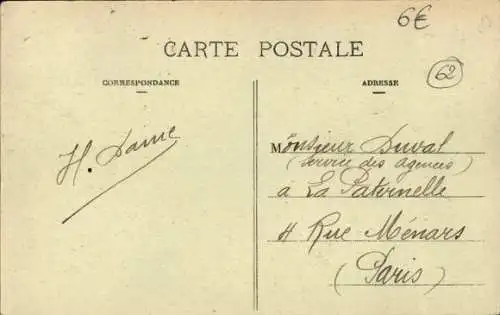 6€
CARTE POSTALE
CORRESPONDANCE
ADRESSE
62
H. Daime
Monsieur Duval
(Service des agences)
à La Paternelle
4 Rue Ménars
(Paris)